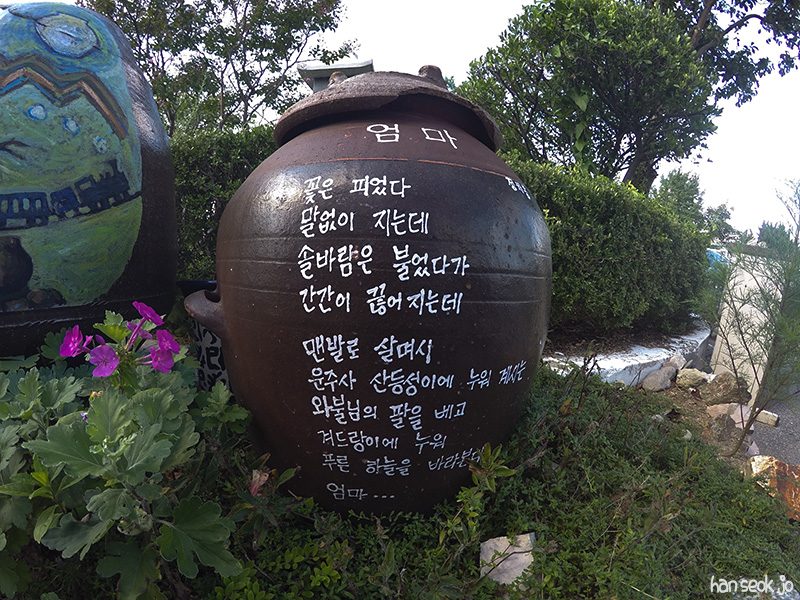 엄마
꽃은 피었다
말없이 지는데
솔바람은 불었다가
간간이 끊어지는데
맨발로 살며시
운주사 산등성이에 누워 계시는
와불님의 팔을 베고
겨드랑이에 누워
푸른 하늘을 바라본다
엄마...
hanseok.jo